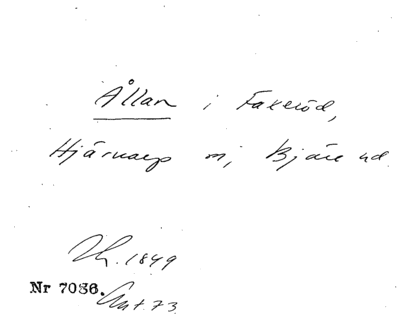 Ållan i Faxeröd,
Hjärnarp sn, Bjäre hd
Th. 1849
Nr 7036. Ant. 73